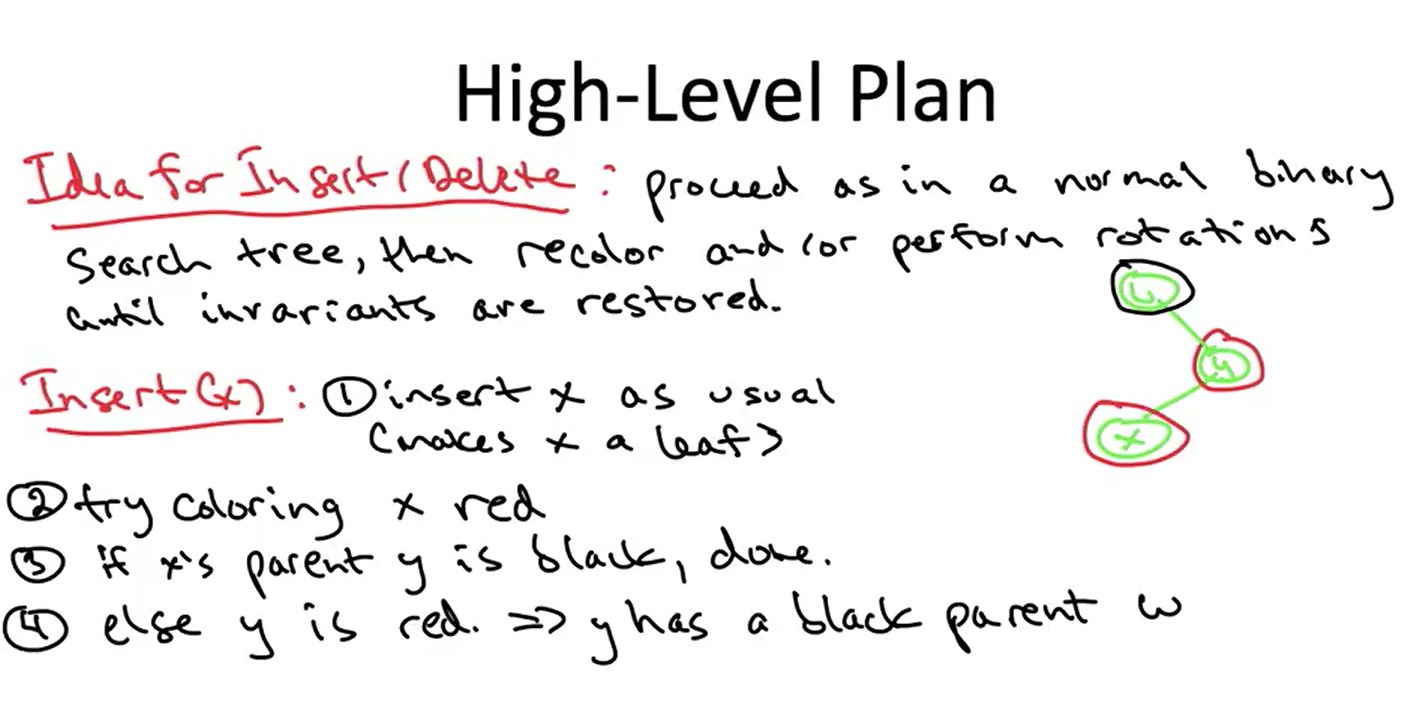 High-Level Plan
Idea for Insert/Delete: proceed as in a normal binary
search tree, then recolor and/or perform rotations
until invariants are restored.
Insert(x): ① insert x as usual
(makes x a leaf)
② try coloring x red
③ if x's parent y is black, done.
④ else y is red. => y has a black parent w
w
y
x